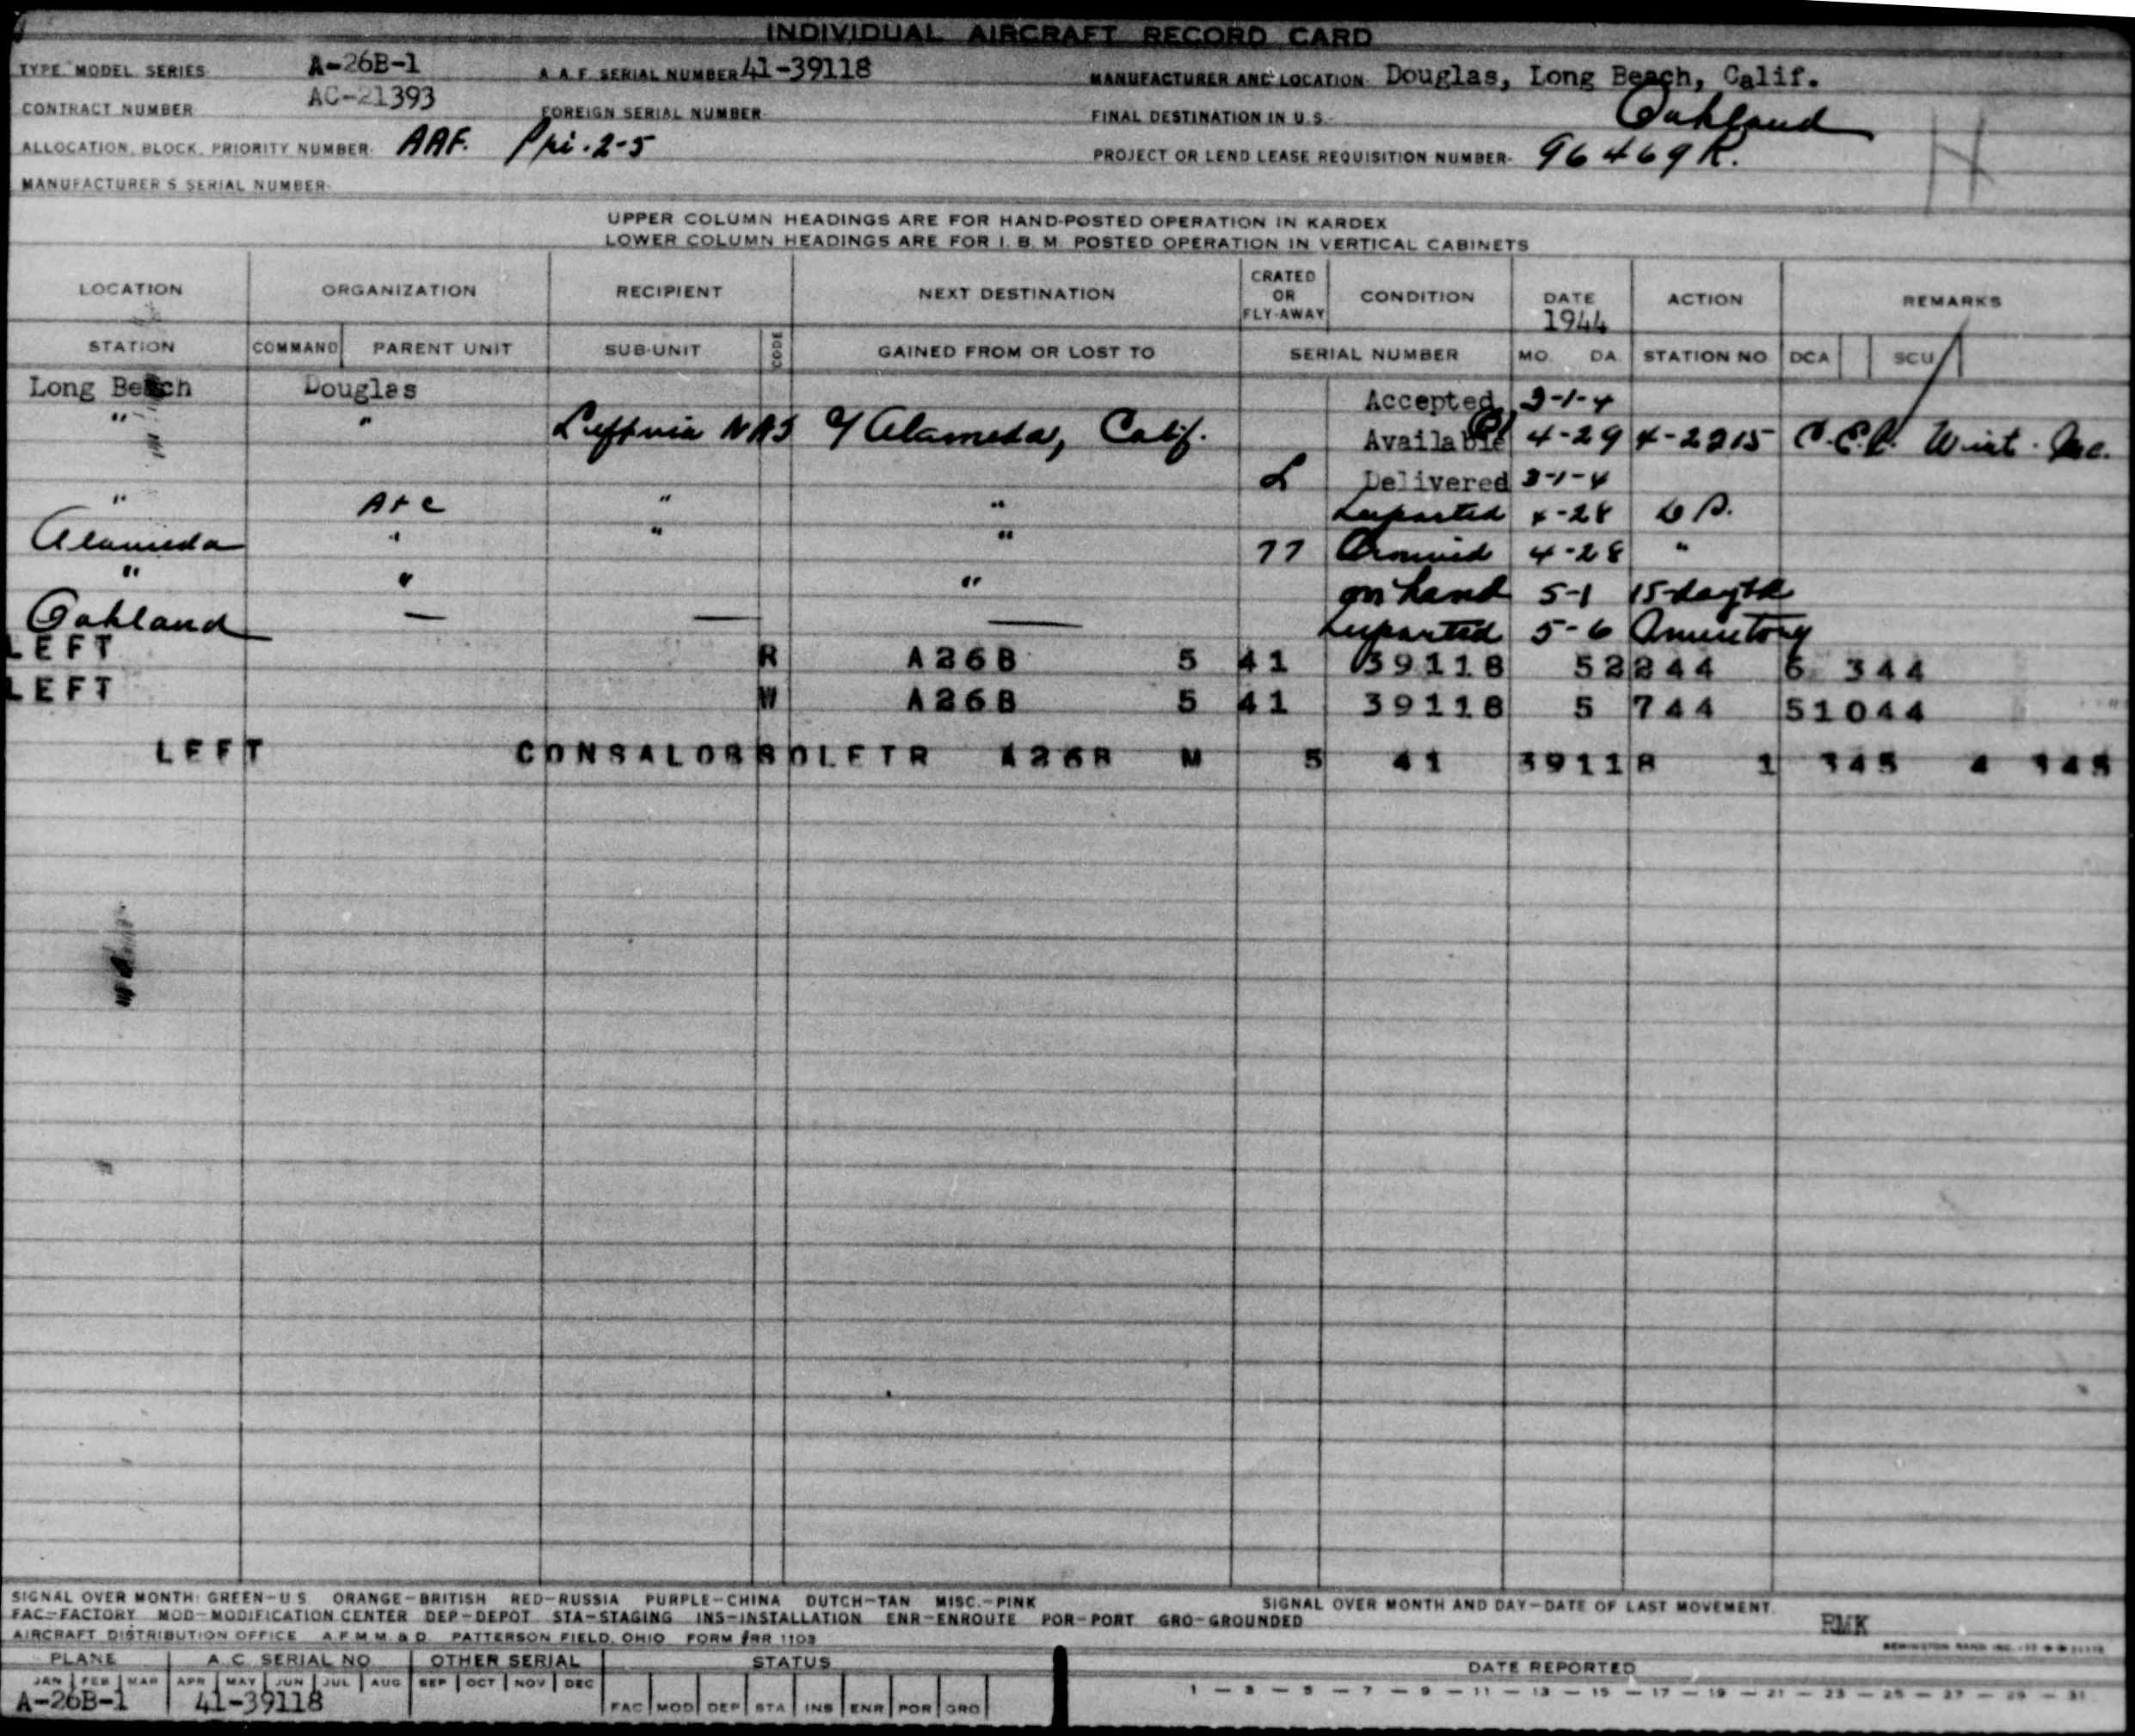 INDIVIDUAL AIRCRAFT RECORD CARD
TYPE MODEL SERIES A-26B-1 A.A.F. SERIAL NUMBER 41-39118 MANUFACTURER AND LOCATION- Douglas, Long Beach, Calif.
CONTRACT NUMBER AC-21393 FOREIGN SERIAL NUMBER- FINAL DESTINATION IN U.S.- Oakland
ALLOCATION, BLOCK, PRIORITY NUMBER- AAF. Pri. 2-5 PROJECT OR LEND LEASE REQUISITION NUMBER- 96469R. H
MANUFACTURER'S SERIAL NUMBER-
UPPER COLUMN HEADINGS ARE FOR HAND-POSTED OPERATION IN KARDEX
LOWER COLUMN HEADINGS ARE FOR I. B. M. POSTED OPERATION IN VERTICAL CABINETS
LOCATION ORGANIZATION RECIPIENT NEXT DESTINATION CRATED OR FLY-AWAY CONDITION DATE 1944 ACTION REMARKS
STATION COMMAND PARENT UNIT SUB-UNIT CODE GAINED FROM OR LOST TO SERIAL NUMBER MO. DA. STATION NO. DCA SCU
Long Beach Douglas Accepted 3-1-4
" " NAS Alameda, Calif. Available 4-29 4-2215
Delivered 3-1-4
" " " 4-28
Alameda " " " 77 4-28 "
" " " on hand 5-1
Oakland — — — 5-6
LEFT R A26B 5 41 39118 52244 6 344
LEFT W A26B 5 41 39118 5 744 51044
LEFT A26B M 5 41 39118 1 345 4 345
SIGNAL OVER MONTH: GREEN-U.S. ORANGE-BRITISH RED-RUSSIA PURPLE-CHINA DUTCH-TAN MISC.-PINK SIGNAL OVER MONTH AND DAY-DATE OF LAST MOVEMENT.
FAC-FACTORY MOD-MODIFICATION CENTER DEP-DEPOT STA-STAGING INS-INSTALLATION ENR-ENROUTE POR-PORT GRO-GROUNDED RMK
AIRCRAFT DISTRIBUTION OFFICE A.F.M.M.&D. PATTERSON FIELD, OHIO FORM #RR 1103
PLANE A.C. SERIAL NO. OTHER SERIAL STATUS DATE REPORTED
JAN FEB MAR APR MAY JUN JUL AUG SEP OCT NOV DEC 1 — 3 — 5 — 7 — 9 — 11 — 13 — 15 — 17 — 19 — 21 — 23 — 25 — 27 — 29 — 31
A-26B-1 41-39118 FAC MOD DEP STA INS ENR POR GRO